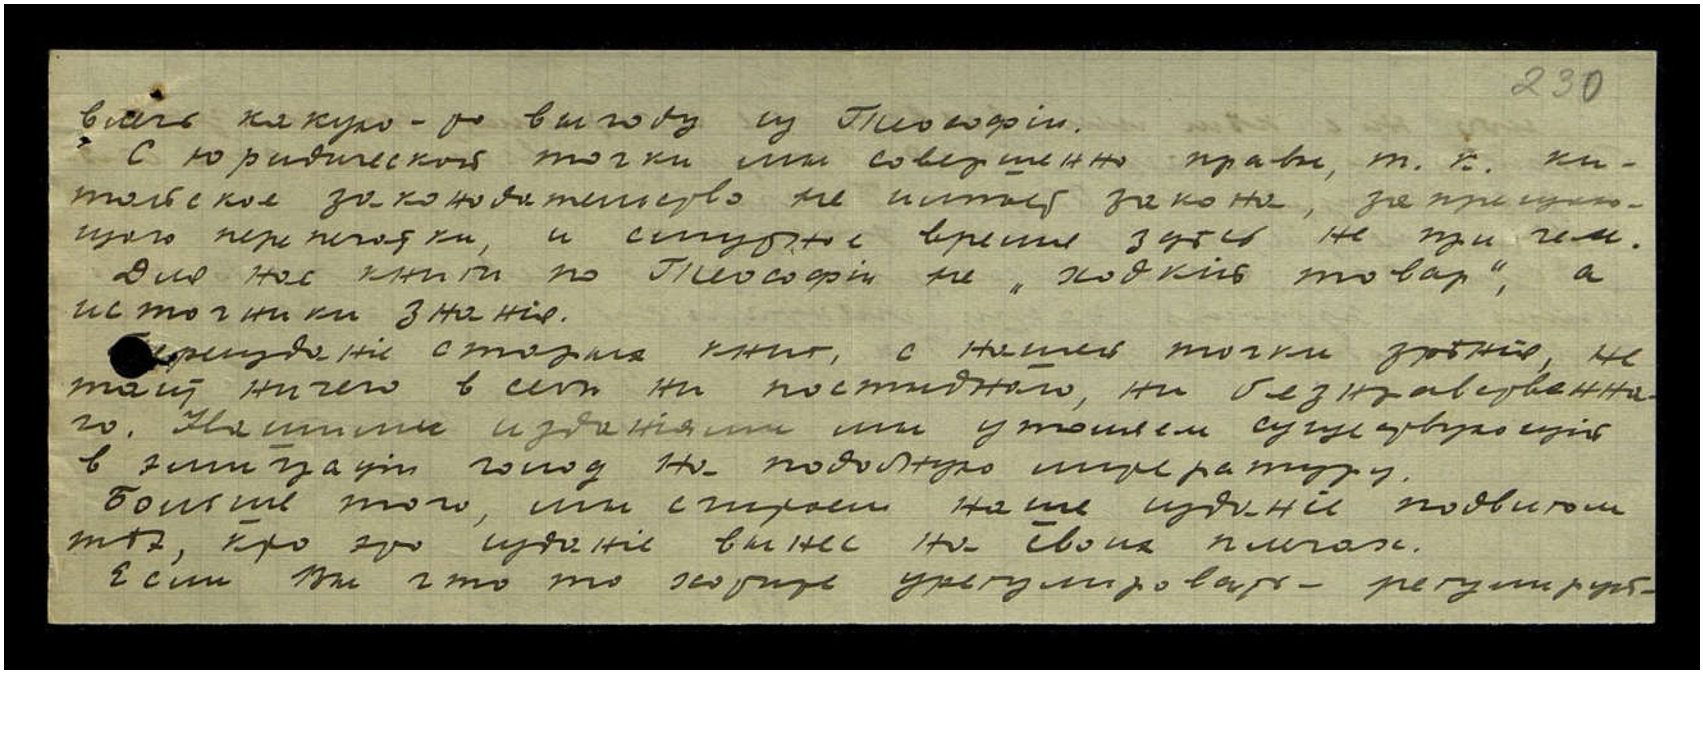 230
влечь какую-то выгоду из Теософіи.
С юридической точки мы совершенно правы, т. к. ки-
тайское законодательство не имѣет закона, запрещаю-
щаго перепечатки, и смутное время здѣсь не при чем.
Для нас книги по Теософіи не „ходкій товар“, а
источники знанія.
Переизданіе старых книг, с нашей точки зрѣнія, не
таит ничего в себѣ ни постыднаго, ни безнравственна-
го. Нашими изданіями мы утоляем существующій
в эмиграціи голод на подобную литературу.
Больше того, мы считаем наше изданіе подвигом
тѣх, кто это изданіе вынес на своих плечах.
Если Вы что то хотите урегулировать – регулируй-